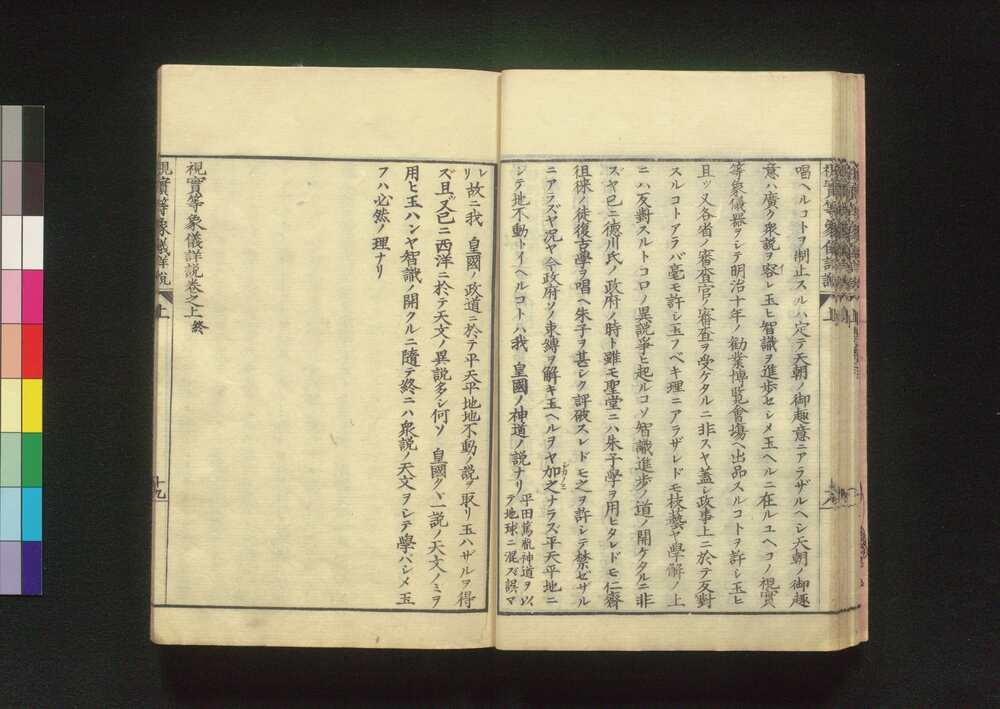 唱ヘルコトヲ制止スルハ定テ天朝ノ御趣意ニアラザルヘシ天朝ノ御趣
意ハ廣ク衆説ヲ容レ玉ヒ智識ヲ進歩セシメ玉ヘルニ在ルユヘコノ視實
等象儀器ヲシテ明治十年ノ勸業博覧會塲ヘ出品スルコトヲ許シ玉ヒ
且ッ又各省ノ審査官ノ審査ヲ受ケタルニ非スヤ蓋シ政事上ニ於テ反對
スルコトアラバ毫モ許シ玉フベキ理ニアラザレドモ技藝ヤ學解ノ上
ニハ反對スルトコロノ異説爭ヒ起ルコソ智識進歩ノ道ノ開ケタルニ非
スヤ已ニ德川氏ノ政府ノ時ト雖モ聖堂ニハ朱子學ヲ用ヒタレドモ仁齋
徂徠ノ徒復古學ヲ唱ヘ朱子ヲ甚シク評破スレドモ之ヲ許シテ禁ゼザル
ニアラズヤ况ヤ今政府ソノ束縛ヲ解キ玉ヘルヲヤ加之ナラズ平天平地ニ
シテ地不動トイヘルコトハ我 皇國ノ神道ノ説ナリ平田篤胤神道ヲ以テ地球ニ混ズ誤マ
レリ故ニ我 皇國ノ政道ニ於テ平天平地地不動ノ説ヲ取リ玉ハザルヲ得
ズ且ッ又已ニ西洋ニ於テ天文ノ異説多シ何ソ 皇國タヾ一説ノ天文ノミヲ
用ヒ玉ハンヤ智識ノ開クルニ隨テ終ニハ衆説ノ天文ヲシテ學バシメ玉
フハ必然ノ理ナリ
視實等象儀詳説卷之上終
視實等象儀詳説 上 十九